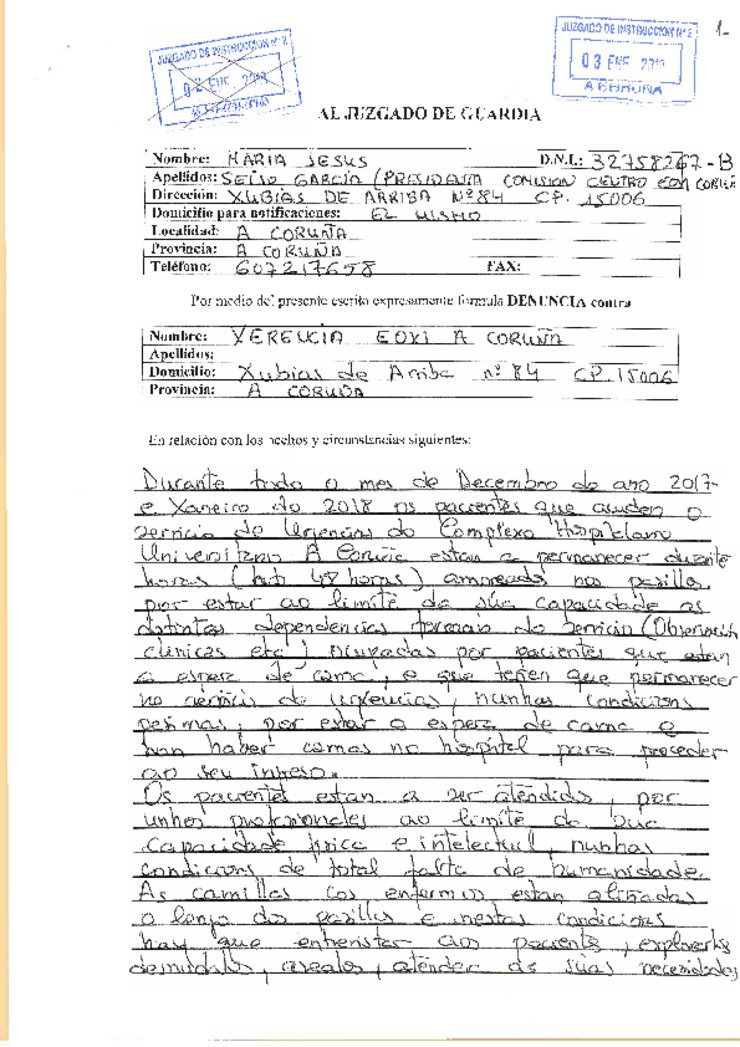 JUZGADO DE INSTRUCCION Nº 2
02 ENE. 2018
JUZGADO DE INSTRUCCION Nº 2
03 ENE. 2018
A CORUÑA
1-
AL JUZGADO DE GUARDIA
Nombre: MARIA JESUS D.N.I.: 32758267-B
Apellidos: SEIJO GARCÍA (PRESIDENTA COMISION CENTRO EOXI CORUÑA
Dirección: XUBIAS DE ARRIBA Nº 84 CP. 15006
Domicilio para notificaciones: EL MISMO
Localidad: A CORUÑA
Provincia: A CORUÑA
Teléfono: 607217658 FAX:
Por medio del presente escrito expresamente formula DENUNCIA contra
Nombre: XERENCIA EOXI A CORUÑA
Apellidos:
Domicilio: Xubias de Arriba nº 84 CP. 15006
Provincia: A CORUÑA
En relación con los hechos y circunstancias siguientes:
Durante todo o mes de Decembro do ano 2017
e Xaneiro do 2018 os pacientes que acuden o
servicio de Urgencias do Complexo Hospitalario
Universitario A Coruña estan a permanecer durante
horas (hata 48 horas) amoreados nos pasillos,
por estar ao limite da súa capacidade as
distintas dependencias do servicio (Observación,
clinicas etc) ocupadas por pacientes que estan
a espera de cama, e que teñen que permanecer
no servicio de urgencias, nunhas condicions
pesimas, por estar a espera de cama e
non haber camas no hospital para proceder
ao seu ingreso.
Os pacientes estan a ser atendidos, por
unhos profesionales ao limite da sua
capacidade fisica e intelectual, nunhas
condicions de total falta de humanidade.
As camillas cos enfermos estan aliñadas
o longo dos pasillos e nestas condicions
hay que entrevistar aos pacientes, explorarlos
desnudalos, asealos, atender as súas necesidades